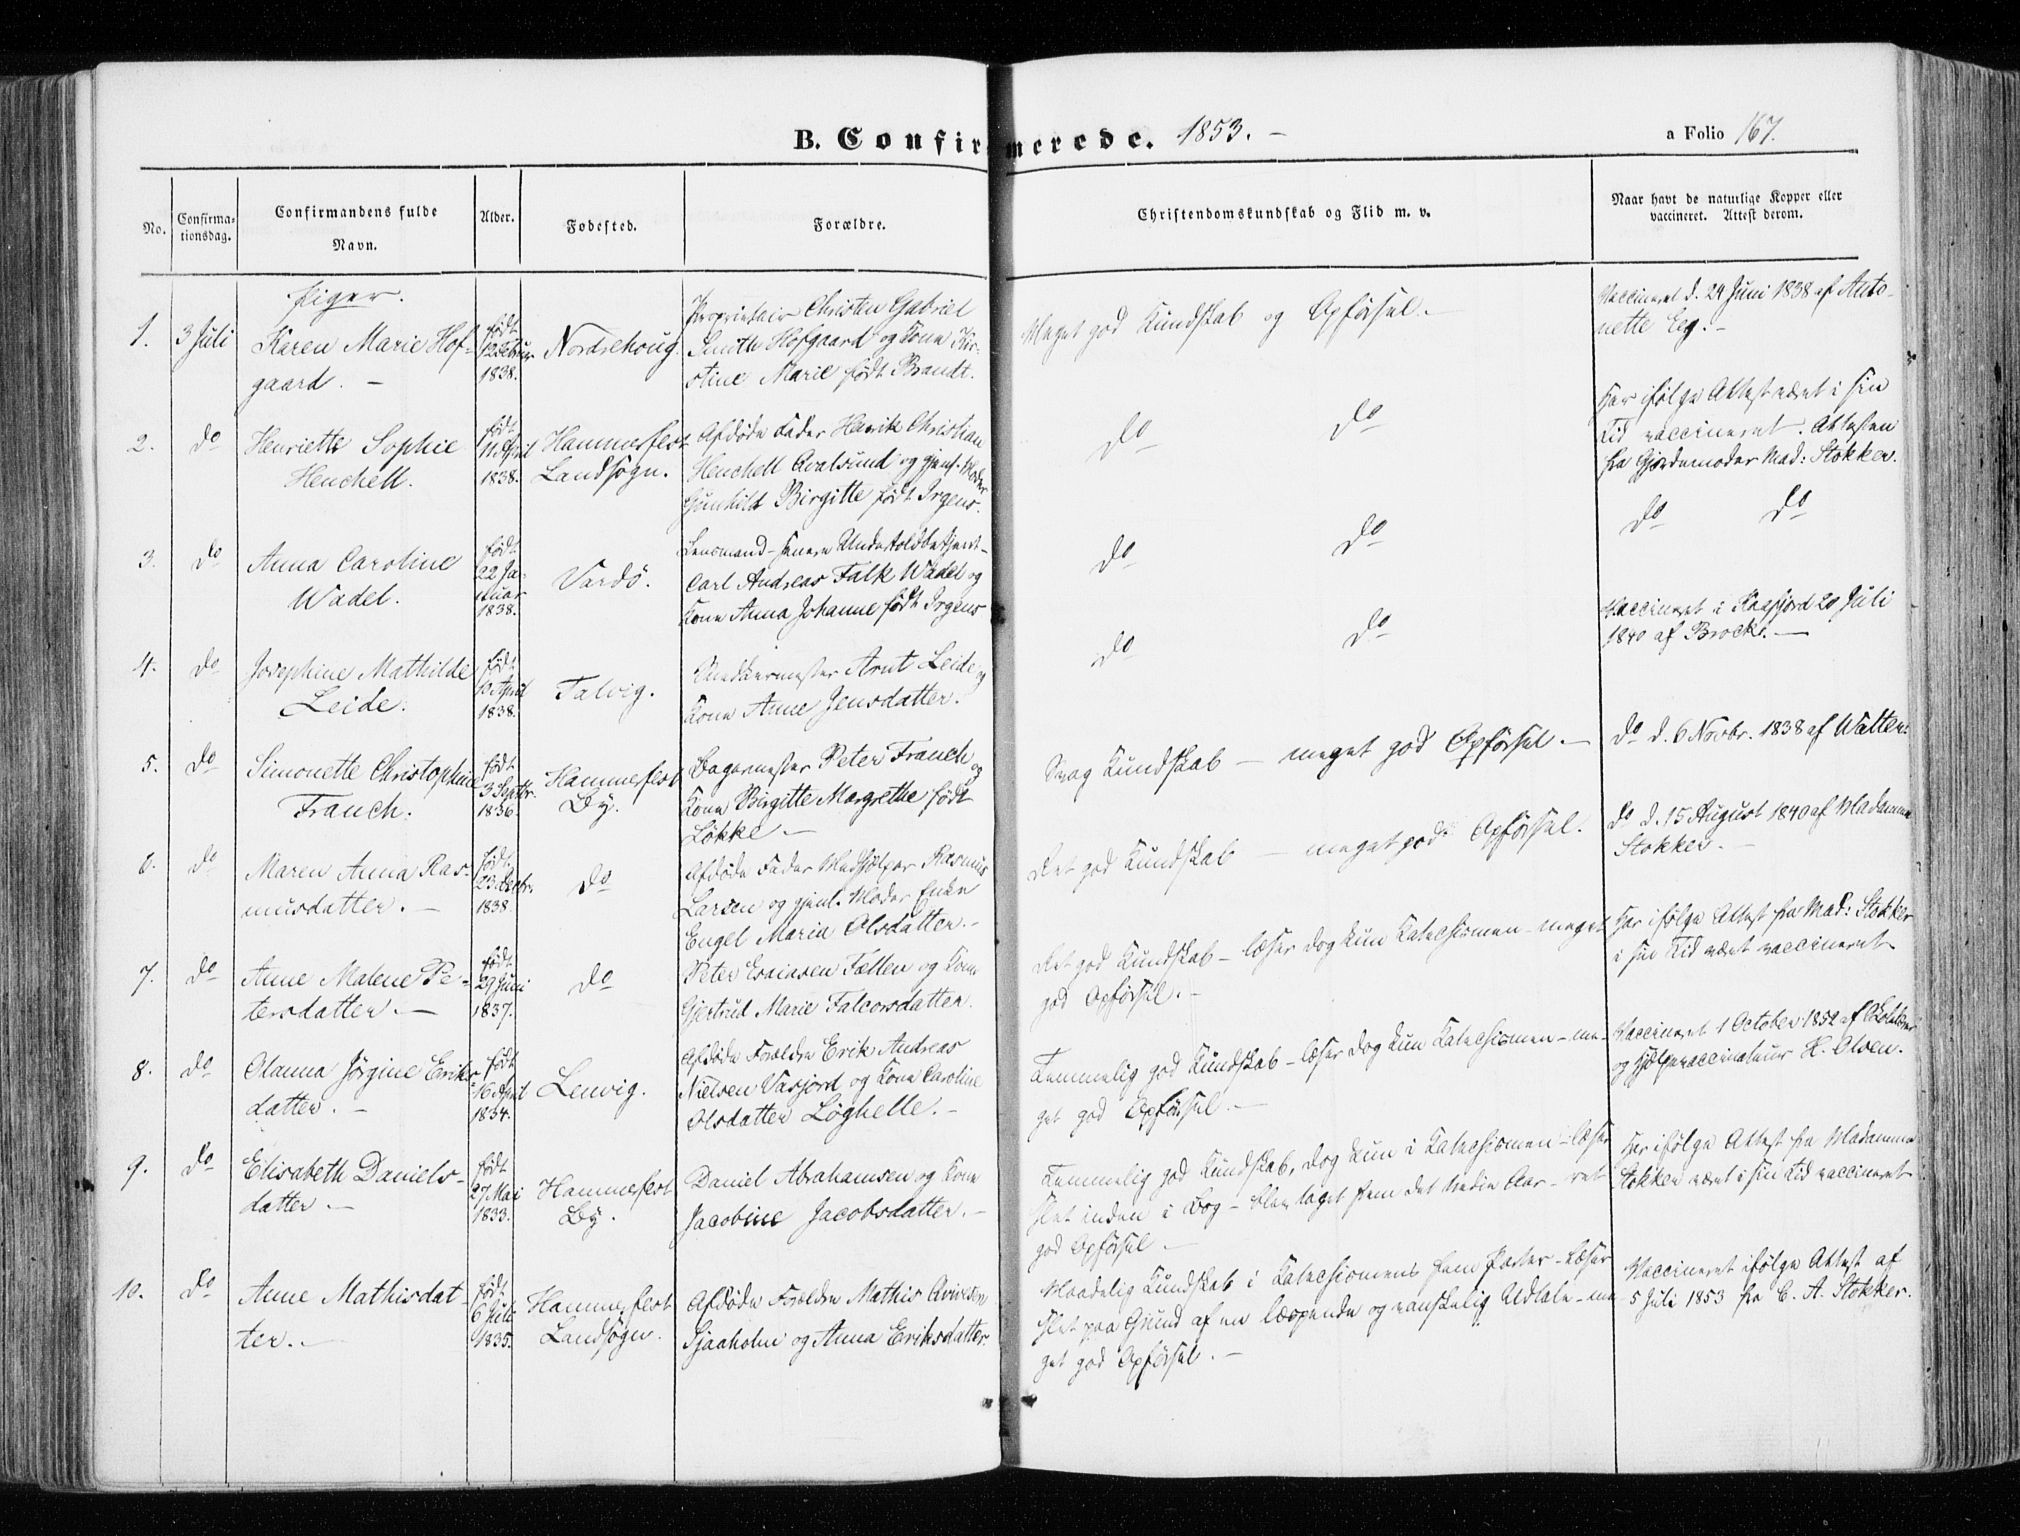 B. Confirmerede. 1853. –
a Folio 167.
No.
Confirma-
tionsdag.
Confirmandens fulde
Navn.
Alder.
Fødested.
Forældre.
Christendomskundskab og Flid m. v.
Naar havt de naturlige Kopper eller
vaccineret. Attest derom.
Piger.
1.
3 Juli
Karen Marie Hof-
gaard. –
født
12 Februar
1838.
Nordrehoug.
Proprietair Christen Gabriel
Smith Hofgaard og Kone Kir-
stine Marie født Brandt.
Meget god Kundskab og Opførsel. –
Vaccineret d. 24 Juni 1838 af Anto-
nette Eeg. –
2.
do
Henriette Sophie
Henchell.
født
11 April
1838.
Hammerfest
Landsogn.
Afdøde Fader Henrik Christian
Henchell Qvalsund og gjenl. Moder
Gunhild Birgitte født Irgens.
do
do
Har ifølge Attest været i sin
Tid vaccineret. Attesten
fra Gjordemoder Mad: Stokker.
3.
do
Anna Caroline
Wadel.
født
22 Ja-
nuar
1838.
Vardö.
Lensmand – senere Undertoldbetjent –
Carl Andreas Falk Wadel og
Kone Anna Johanne født Irgens
do
do
do
do
4.
do
Josephine Mathilde
Leide.
født
10 April
1838.
Talvig.
Arnt Leide og
Kone Anne Jensdatter.
do
do
Vaccineret i Kaafjord 20 Juli
1840 af Brocks. –
5.
do
Simonette Christophine
Franch.
født
3 Septbr.
1836.
Hammerfest
By.
Bagermester Peter Franch og
Kone Birgitte Margrethe født
Løkke –
Svag Kundskab – meget god Opførsel. –
do d. 6 Novbr. 1838 af Watten:
6.
do
Maren Anna Ras-
musdatter. –
født
23 Decbr.
1838
do
Afdøde Fader Rasmus
Larsen og gjenl. Moder Enke
Engel Maria Olsdatter. –
Ret god Kundskab – meget god Opførsel.
do d. 15 August 1840 af Madamme
Stokker. –
7.
do
Anne Malene Pe-
tersdatter. –
født
29 Juni
1837.
do
Peter Esaiasen Fætten og Kone
Gjertrud Marie Falcorsdatter.
Ret god Kundskab – læser dog kun Katechismen – meget
god Opførsel. –
Har ifølge Attest fra Mad: Stokker
i sin Tid været vaccineret
8.
do
Olanna Jörgine Eriks-
datter. –
født
16 April
1834.
Lenvig.
Afdøde Forældre Erik Andreas
Nielsen Vasjord og Kone Caroline
Olsdatter Löghelle. –
Temmelig god Kundskab – læser dog kun Katechismen – me-
get god Opførsel. –
Vaccineret 1 October 1852 af
og Hjelpevaccinateur H. Olsen.
9.
do
Elisabeth Daniels-
datter. –
født
27 Mai
1833.
Hammerfest
By.
Daniel Abrahamsen og Kone
Jacobine Jacobsdatter. –
Temmelig god Kundskab, dog kun i Katechismen – læser
slet inden i Bog – blev taget frem det tredie Aar – ret
god Opførsel. –
Har ifølge Attest fra Madamme
Stokker været i sin Tid vaccineret
10.
do
Anne Mathisdat-
ter. –
født
6 Juli
1835.
Hammerfest
Landsogn.
Afdøde Forældre Mathis
Sjaaholm og Anna Eriksdatter.
Maadelig Kundskab i Katechismens fem Parter – læser
slet paa Grund af en læspende og vanskelig Udtale – me-
get god Opførsel. –
Vaccineret ifølge Attest af
5 Juli 1853 fra C. A. Stokker.